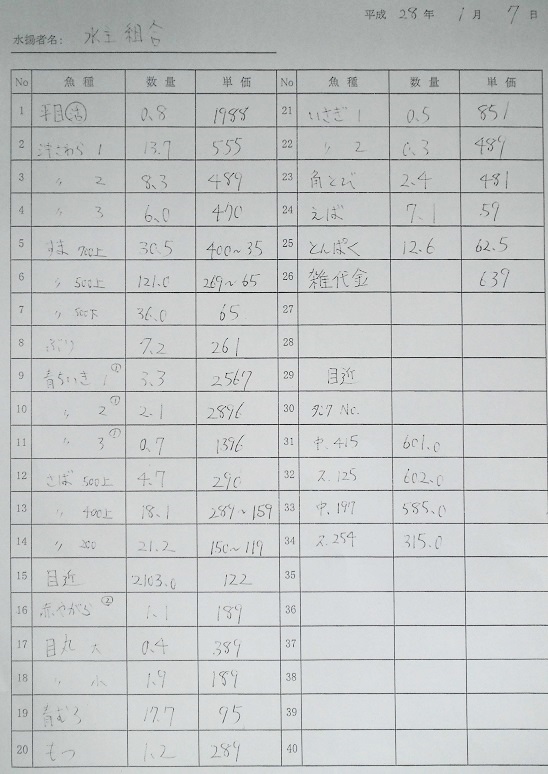 平成 28 年 1 月 7 日
水揚者名: 水主組合
No 魚種 数量 単価 No 魚種 数量 単価
1 平目(活) 0.8 1988 21 いさぎ 1 0.5 851
2 沖さわら 1 13.7 555 22 〃 2 0.3 489
3 〃 2 8.3 489 23 角とび 2.4 481
4 〃 3 6.0 470 24 えば 7.1 59
5 すま 700上 30.5 400~35 25 とんぱく 12.6 62.5
6 〃 500上 121.0 269~65 26 雑代金 639
7 〃 500下 36.0 65 27
8 ぶり 7.2 261 28
9 青ちいき 1 ① 3.3 2567 29 目近
10 〃 2 ① 2.1 2896 30 タンク No.
11 〃 3 ① 0.7 1396 31 中.415 601.0
12 さば 500上 4.7 290 32 ス.125 602.0
13 〃 400上 18.1 289~159 33 中.197 585.0
14 〃 200 21.2 150~119 34 ス.254 315.0
15 目近 2103.0 122 35
16 赤やがら ② 1.1 189 36
17 目丸 大 0.4 389 37
18 〃 小 1.9 189 38
19 青むろ 17.7 95 39
20 もつ 1.2 289 40